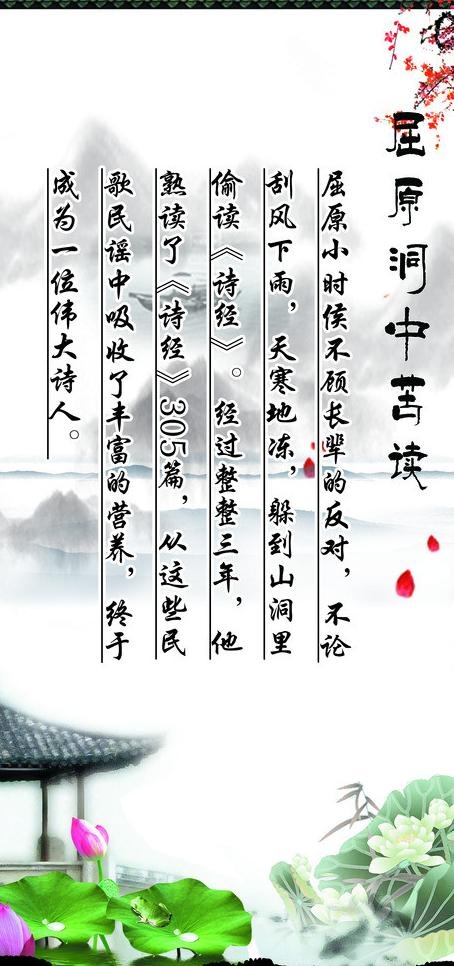 屈原洞中苦读
屈原小时侯不顾长辈的反对，不论
刮风下雨，天寒地冻，躲到山洞里
偷读《诗经》。经过整整三年，他
熟读了《诗经》305篇，从这些民
歌民谣中吸收了丰富的营养，终于
成为一位伟大诗人。